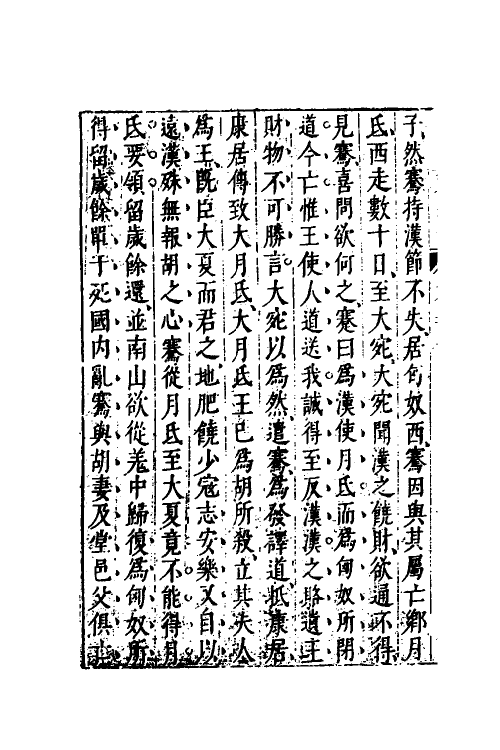 子然騫持漢節不失居匈奴西騫因與其屬亡鄉月
氏西走數十日至大宛大宛聞漢之饒財欲通不得
見騫喜問欲何之騫曰爲漢使月氏而爲匈奴所閉
道今亡惟王使人道送我誠得至反漢漢之賂遺王
財物不可勝言大宛以爲然遣騫爲發譯道抵康居
康居傳致大月氏大月氏王已爲胡所殺立其夫人
爲王旣臣大夏而君之地肥饒少寇志安樂又自以
遠漢殊無報胡之心騫從月氏至大夏竟不能得月
氏要領留歲餘還並南山欲從羌中歸復爲匈奴所
得留歲餘單于死國内亂騫與胡妻及堂邑父俱亡